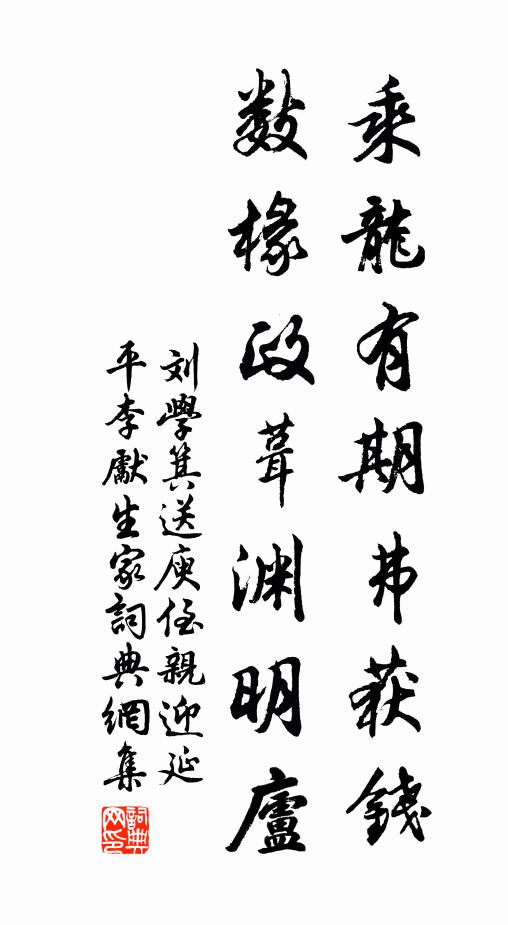 乘龍有期弗获錢
数椽政葺渊明廬
刘學箕送庾侄親迎延
平李獻生家詞典網集
詞典网印